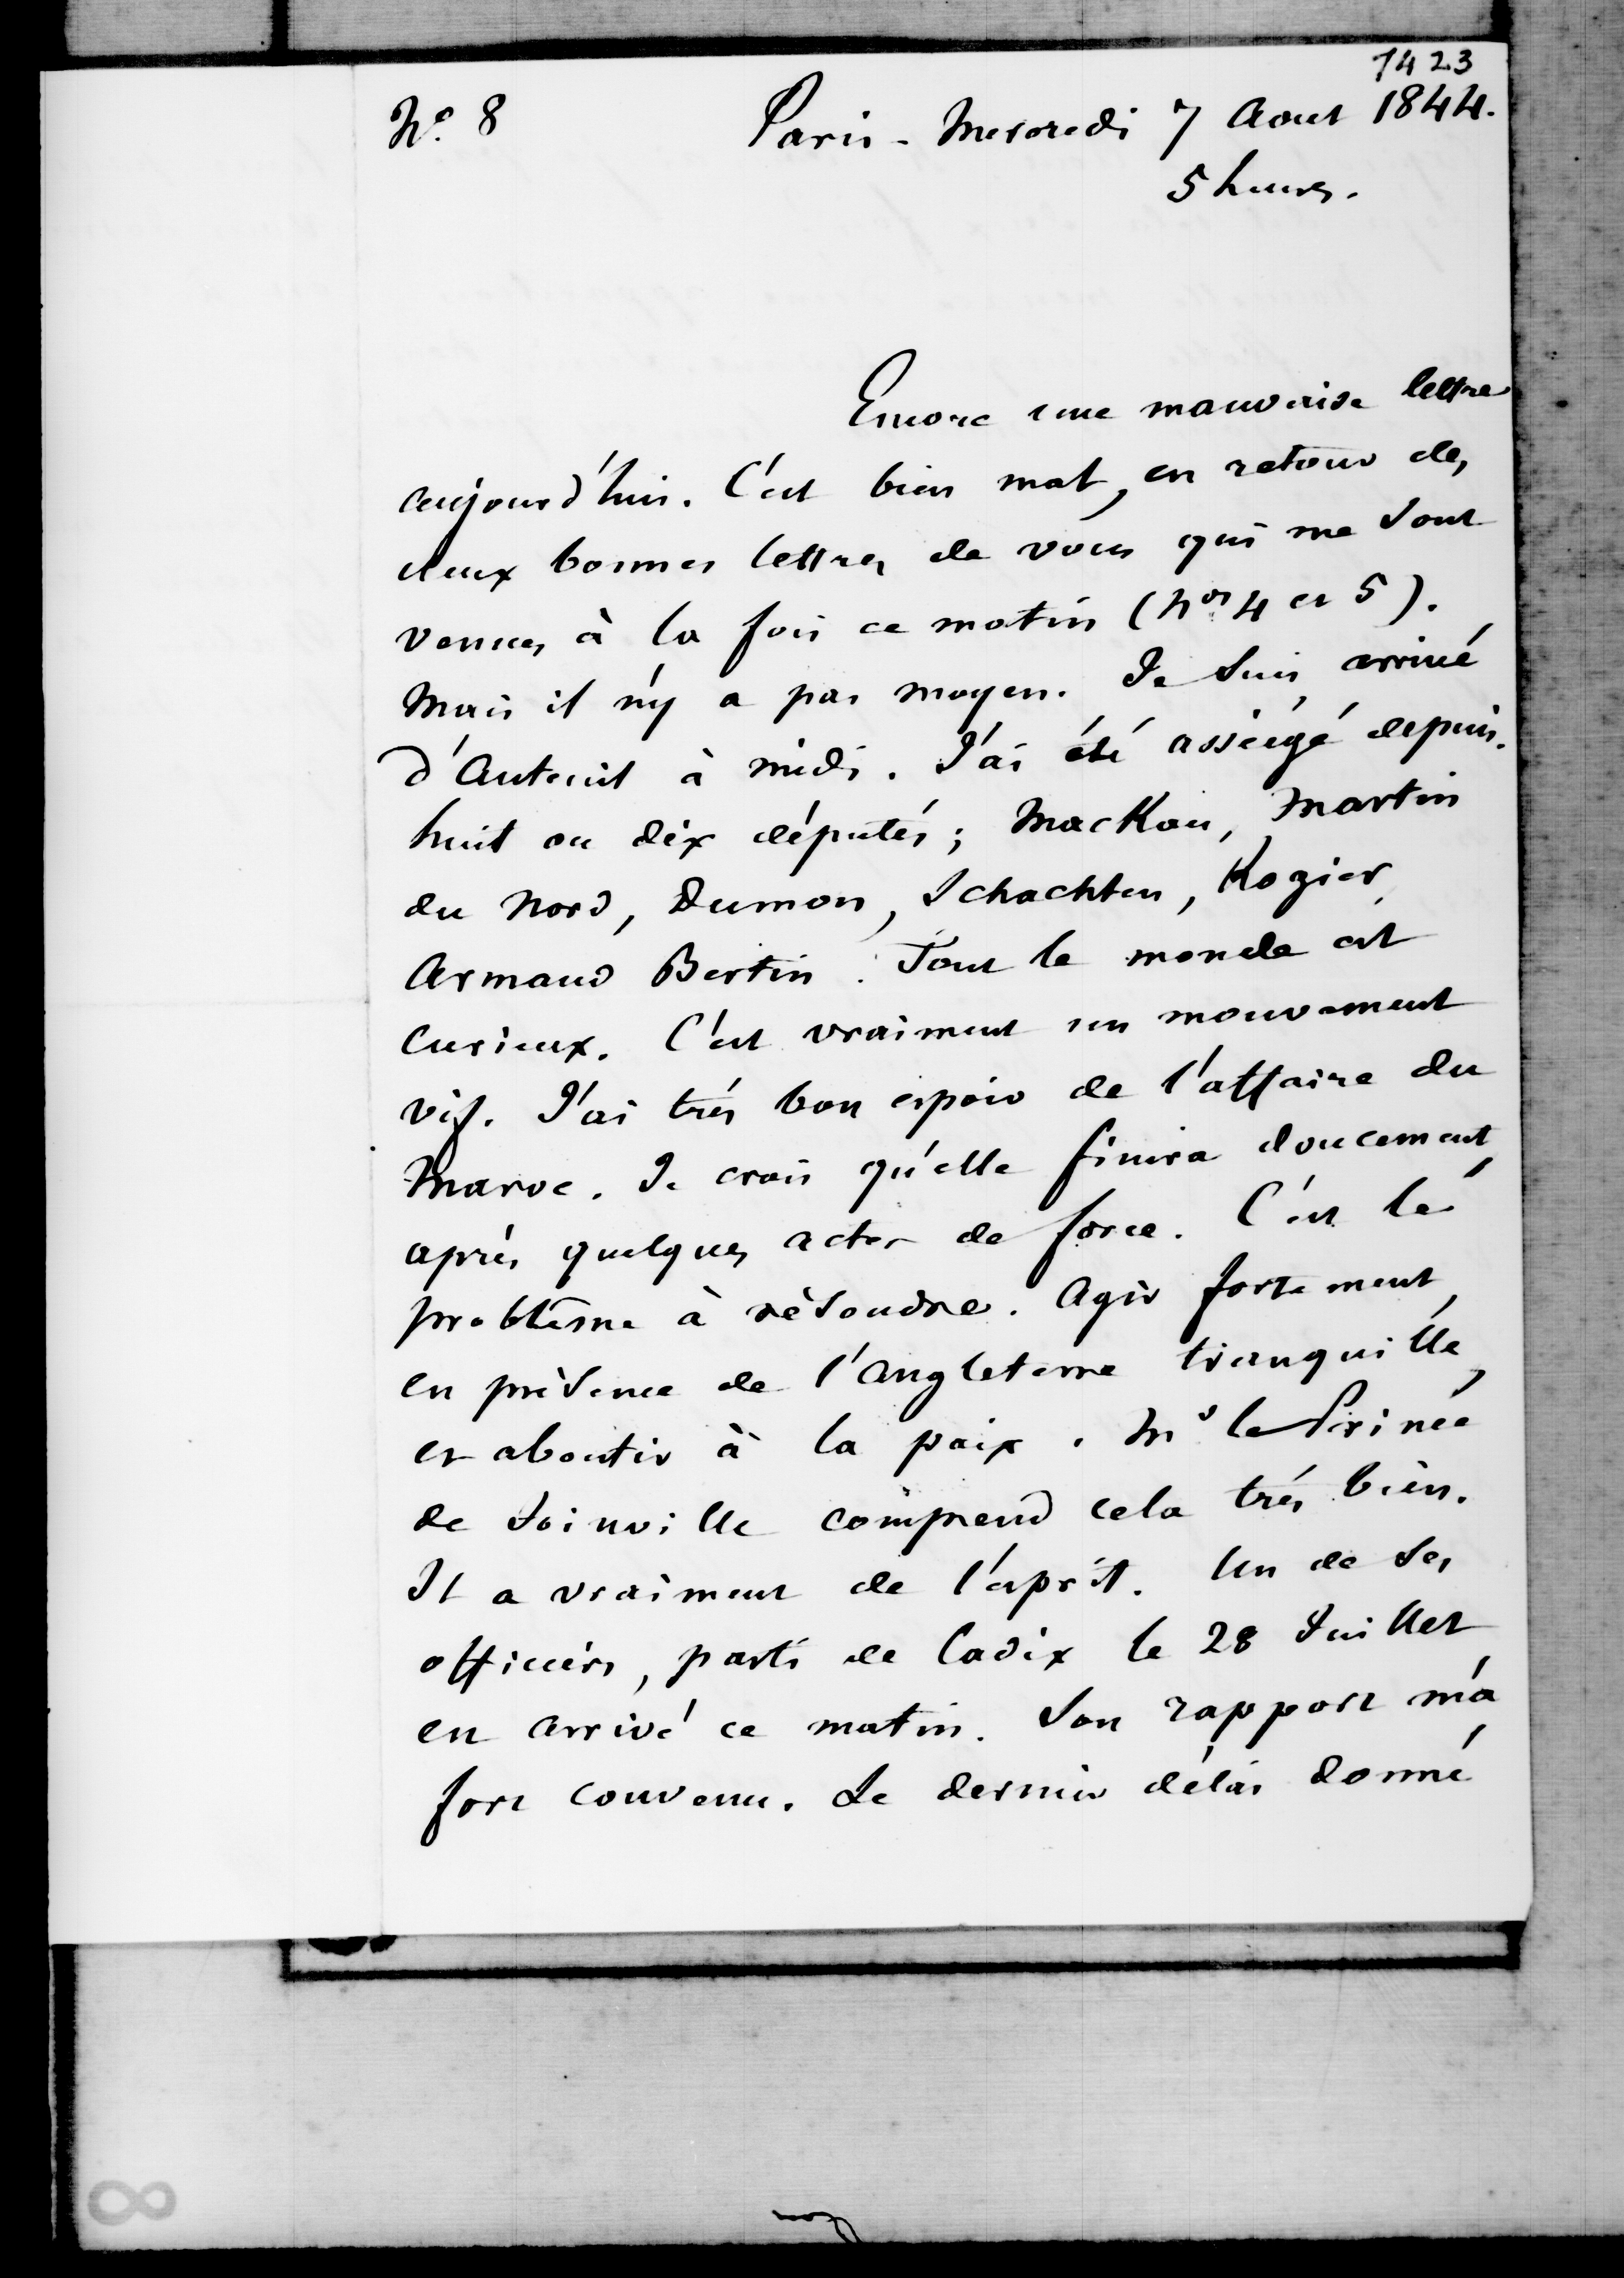 1423
N° 8 Paris - Mercredi 7 Aout 1844.
5 heures.
Encore une mauvaise lettre
aujourd'hui. C'est bien mal, en retour des
deux bonnes lettres de vous qui me sont
venues à la fois ce matin (nos 4 et 5).
Mais il n'y a pas moyen. Je suis arrivé
d'Auteuil à midi. J'ai été assiégé depuis.
huit ou dix députés ; Mackau, Martin
du Nord, Dumon, Schachten, Rozier,
Armand Bertin. Tout le monde est
curieux. C'est vraiment un mouvement
vif. J'ai très bon espoir de l'affaire du
Maroc. Je crois qu'elle finira doucement,
après quelques actes de force. C'est le
problème à résoudre. Agir fortement,
en présence de l'Angleterre tranquille,
et aboutir à la paix. Mr le Prince
de Joinville comprend cela très bien.
Il a vraiment de l'esprit. Un de ses
officiers, parti de Cadix le 28 Juillet
est arrivé ce matin. Son rapport m'a
fort convenu. Le dernier délai donné
8